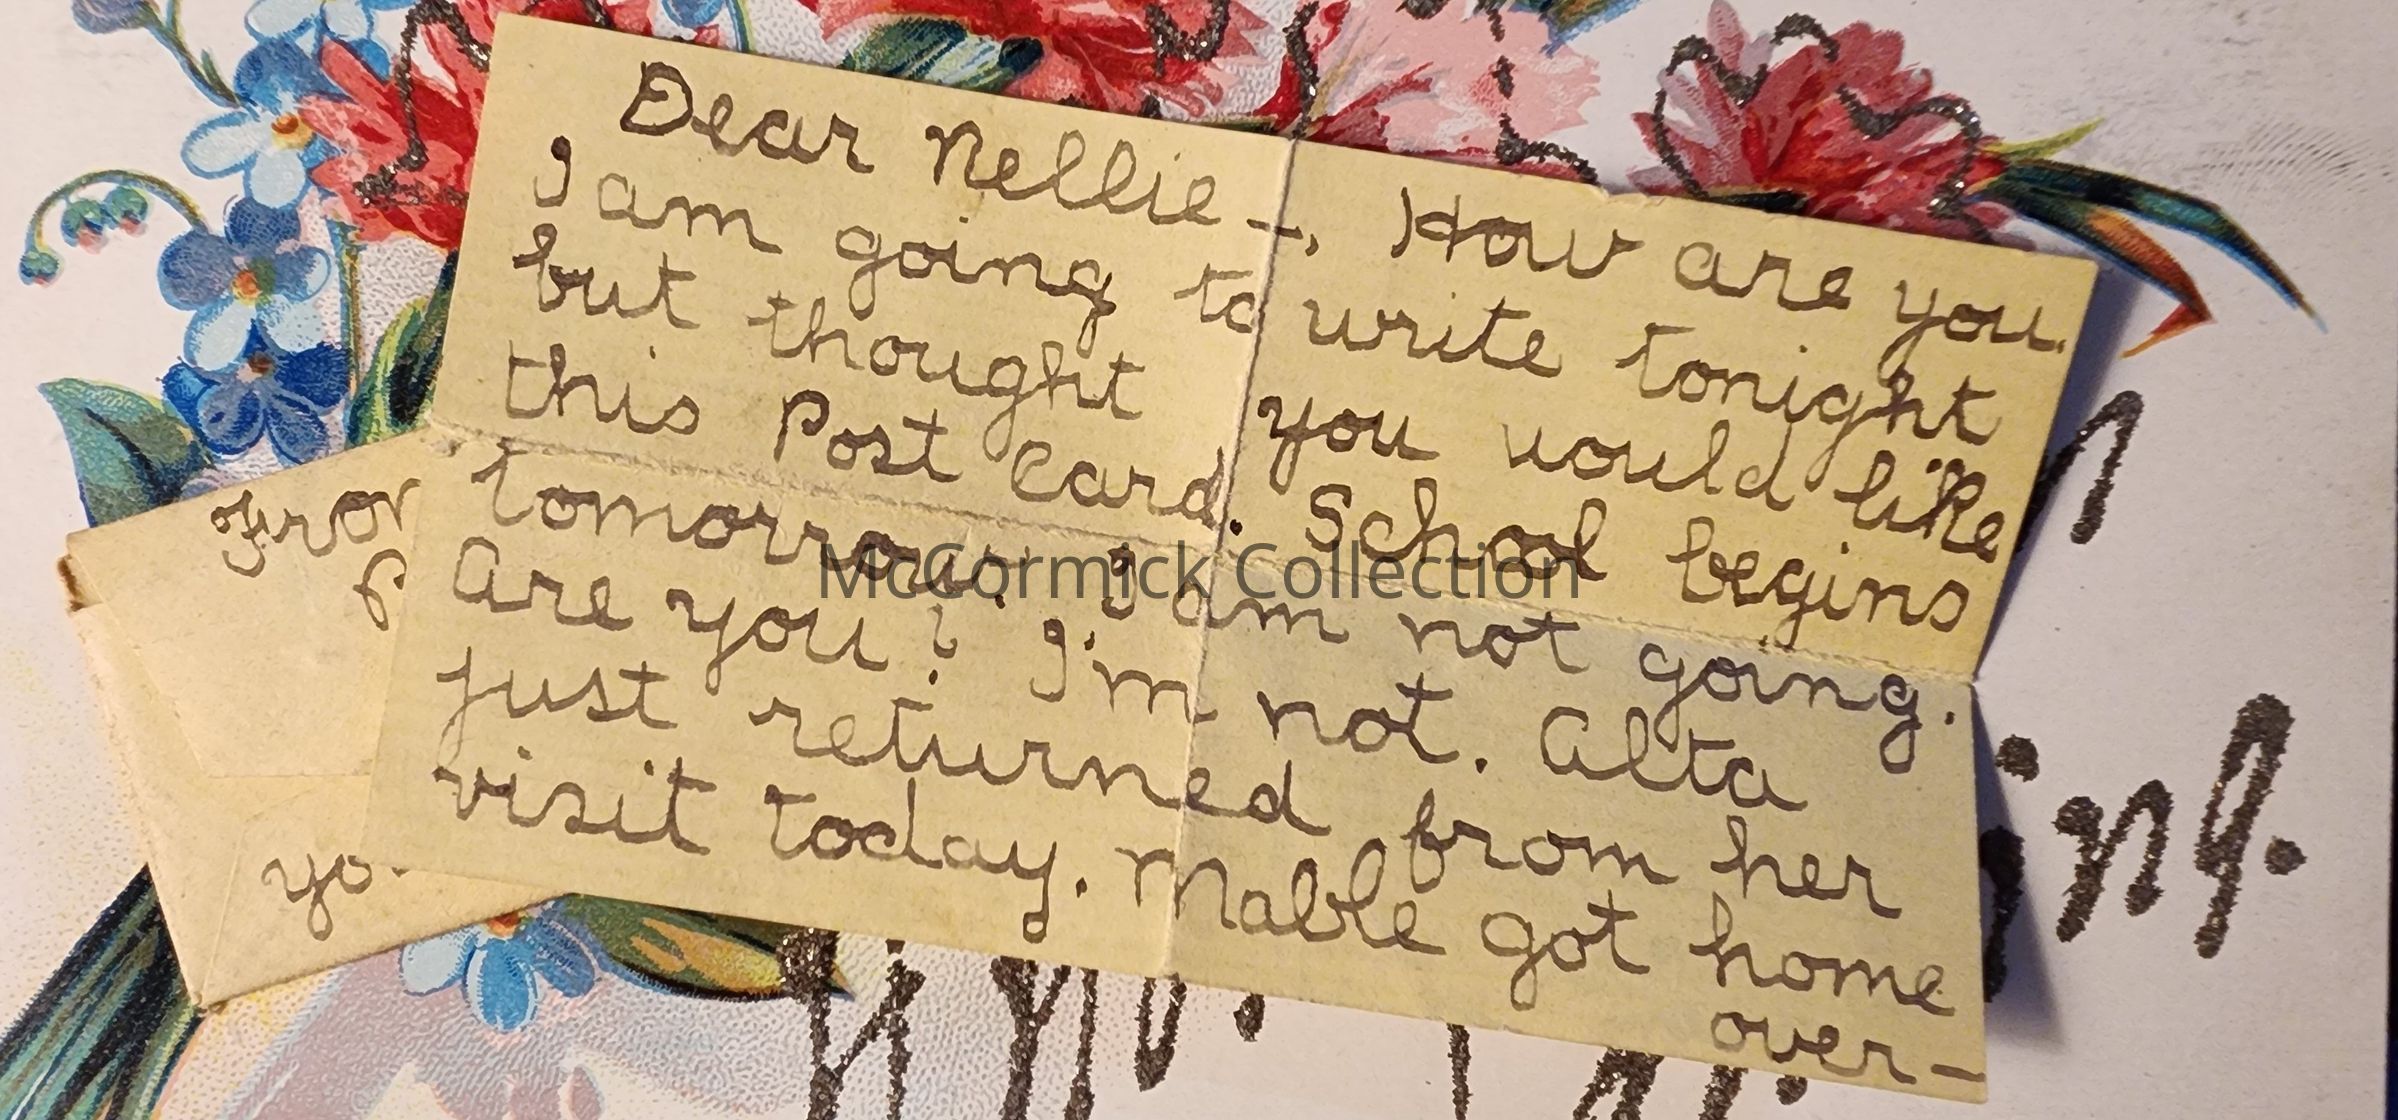 Dear Nellie-, How are you.
I am going to write tonight
but thought you would like
this Post Card. School begins
tomorrow. I am not going.
Are you? I'm not. Alta
just returned from her
visit today. Mable got home
over-
From
yo
ing.
McCormick Collection